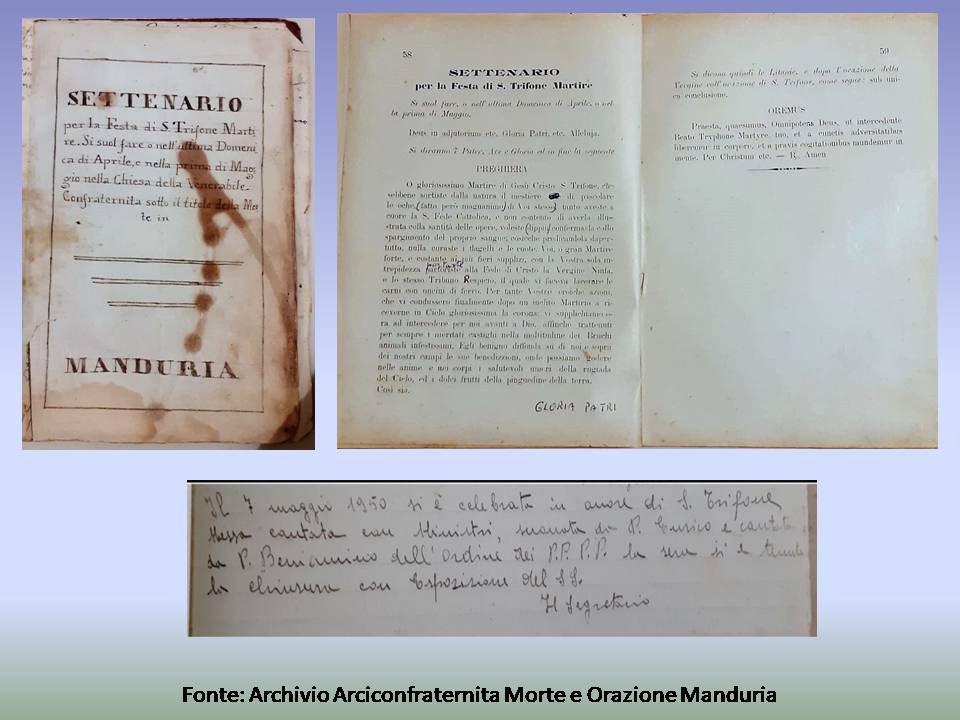 SETTENARIO
per la Festa di S. Trifone Marti
re. Si suol fare o nell'ultima Domeni
ca di Aprile, o nella prima di Mag
gio nella Chiesa della Venerabile
Confraternita sotto il titolo della Mor
te in
MANDURIA
58
SETTENARIO
per la Festa di S. Trifone Martire
Si suol fare, o nell'ultima Domenica di Aprile, o nel
la prima di Maggio.
Deus in adjutorium etc. Gloria Patri, etc. Alleluja.
Si diranno 7 Pater, Ave e Gloria ed in fine la seguente
PREGHIERA
O gloriosissimo Martire di Gesù Cristo S. Trifone, che
sebbene sortiste dalla natura il mestiere di pascolare
le oche, (fatto però magnanimo) di Voi stesso) tanto aveste a
cuore la S. Fede Cattolica, e non contento di averla illu-
strata colla santità delle opere, voleste confermarla collo
spargimento del proprio sangue; cosicchè predicandola daper-
tutto, nulla curaste i flagelli e le ruote. Voi, o gran Martire
forte, e costante ai più fieri supplizi, con la Vostra sola in-
trepidezza portaste alla Fede di Cristo la Vergine Ninfa,
e lo stesso Tribuno Respicio, il quale vi faceva lacerare le
carni con uncini di ferro. Per tante Vostre eroiche azioni,
che vi condussero finalmente dopo un inclito Martirio a ri-
cevere in Cielo gloriosissima la corona; vi supplichiamo o-
ra ad intercedere per noi avanti a Dio, affinchè trattenuti
per sempre i meritati castighi nella moltitudine dei Bruchi
animali infestissimi, Egli benigno diffonda su di noi e sopra
dei nostri campi le sue benedizioni, onde possiamo godere
nelle anime e nei corpi i salutevoli umori della rugiada
del Cielo, ed i dolci frutti della pinguedine della terra.
Così sia.
GLORIA PATRI
59
Si dicono quindi le Litanie, e dopo l'orazione della
Vergine coll'orazione di S. Trifone, come segue: sub uni-
ca conclusione.
OREMUS
Praesta, quaesumus, Omnipotens Deus, ut intercedente
Beato Tryphone Martyre tuo, et a cunctis adversitatibus
liberemur in corpore, et a pravis cogitationibus mundemur in
mente. Per Christum etc. — R. Amen
Il 7 maggio 1950 si è celebrata in onore di S. Trifone
Messa cantata con Ministri, suonata da P. Enrico e cantata
da P. Beniamino dell'Ordine dei P.P. P.P. la sera si è tenuta
la chiusura con Esposizione del SS.
Il Segretario
Fonte: Archivio Arciconfraternita Morte e Orazione Manduria